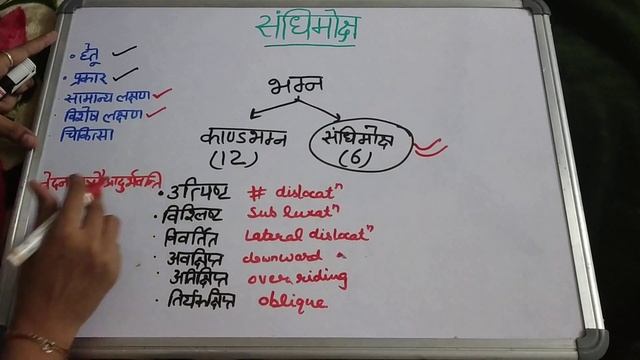 संधिमोक्ष
• हेतू
• प्रकार
• सामान्य लक्षण
• विशेष लक्षण
चिकित्सा
भग्न
काण्डभग्न
(12)
संधिमोक्ष
(6)
• उत्पिष्ट # dislocatⁿ
• विश्लिष्ट Sub luxatⁿ
• विवर्तित Lateral dislocatⁿ
• अवक्षिप्त downward
• अतिक्षिप्त overriding
• तिर्यकक्षिप्त oblique